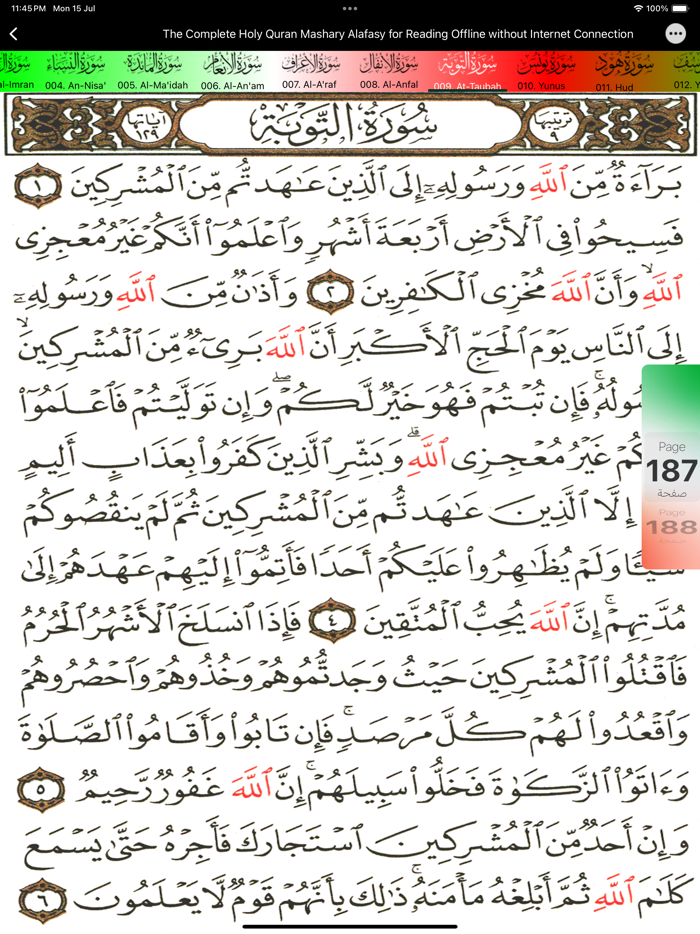 11:45PM Mon 15 Jul
100%
The Complete Holy Quran Mashary Alafasy for Reading Offline without Internet Connection
سورة النساء سورة المائدة سورة الأنعام سورة الأعراف سورة الأنفال سورة التوبة سورة يونس سورة هود
al-Imran 004. An-Nisa' 005. Al-Ma'idah 006. Al-An'am 007. Al-A'raf 008. Al-Anfal 009. At-Taubah 010. Yunus 011. Hud 012. Y
ترتيبها ٩ سُورَةُ التَّوبَةِ آياتها ١٢٩
بَرَآءَةٌ مِّنَ ٱللَّهِ وَرَسُولِهِۦٓ إِلَى ٱلَّذِينَ عَـٰهَدتُّم مِّنَ ٱلْمُشْرِكِينَ ١
فَسِيحُوا۟ فِى ٱلْأَرْضِ أَرْبَعَةَ أَشْهُرٍ وَٱعْلَمُوٓا۟ أَنَّكُمْ غَيْرُ مُعْجِزِى
ٱللَّهِ ۙ وَأَنَّ ٱللَّهَ مُخْزِى ٱلْكَـٰفِرِينَ ٢ وَأَذَٰنٌ مِّنَ ٱللَّهِ وَرَسُولِهِۦٓ
إِلَى ٱلنَّاسِ يَوْمَ ٱلْحَجِّ ٱلْأَكْبَرِ أَنَّ ٱللَّهَ بَرِىٓءٌ مِّنَ ٱلْمُشْرِكِينَ ۙ
سُولُهُۥ ۚ فَإِن تُبْتُمْ فَهُوَ خَيْرٌ لَّكُمْ ۖ وَإِن تَوَلَّيْتُمْ فَٱعْلَمُوٓا۟
كُمْ غَيْرُ مُعْجِزِى ٱللَّهِ ۗ وَبَشِّرِ ٱلَّذِينَ كَفَرُوا۟ بِعَذَابٍ أَلِيمٍ
إِلَّا ٱلَّذِينَ عَـٰهَدتُّم مِّنَ ٱلْمُشْرِكِينَ ثُمَّ لَمْ يَنقُصُوكُمْ
شَيْـًٔا وَلَمْ يُظَـٰهِرُوا۟ عَلَيْكُمْ أَحَدًا فَأَتِمُّوٓا۟ إِلَيْهِمْ عَهْدَهُمْ إِلَىٰ
مُدَّتِهِمْ ۚ إِنَّ ٱللَّهَ يُحِبُّ ٱلْمُتَّقِينَ ٤ فَإِذَا ٱنسَلَخَ ٱلْأَشْهُرُ ٱلْحُرُمُ
فَٱقْتُلُوا۟ ٱلْمُشْرِكِينَ حَيْثُ وَجَدتُّمُوهُمْ وَخُذُوهُمْ وَٱحْصُرُوهُمْ
وَٱقْعُدُوا۟ لَهُمْ كُلَّ مَرْصَدٍ ۚ فَإِن تَابُوا۟ وَأَقَامُوا۟ ٱلصَّلَوٰةَ
وَءَاتَوُا۟ ٱلزَّكَوٰةَ فَخَلُّوا۟ سَبِيلَهُمْ ۚ إِنَّ ٱللَّهَ غَفُورٌ رَّحِيمٌ ٥
وَإِنْ أَحَدٌ مِّنَ ٱلْمُشْرِكِينَ ٱسْتَجَارَكَ فَأَجِرْهُ حَتَّىٰ يَسْمَعَ
كَلَـٰمَ ٱللَّهِ ثُمَّ أَبْلِغْهُ مَأْمَنَهُۥ ۚ ذَٰلِكَ بِأَنَّهُمْ قَوْمٌ لَّا يَعْلَمُونَ ٦
Page
187
صفحة
Page
188